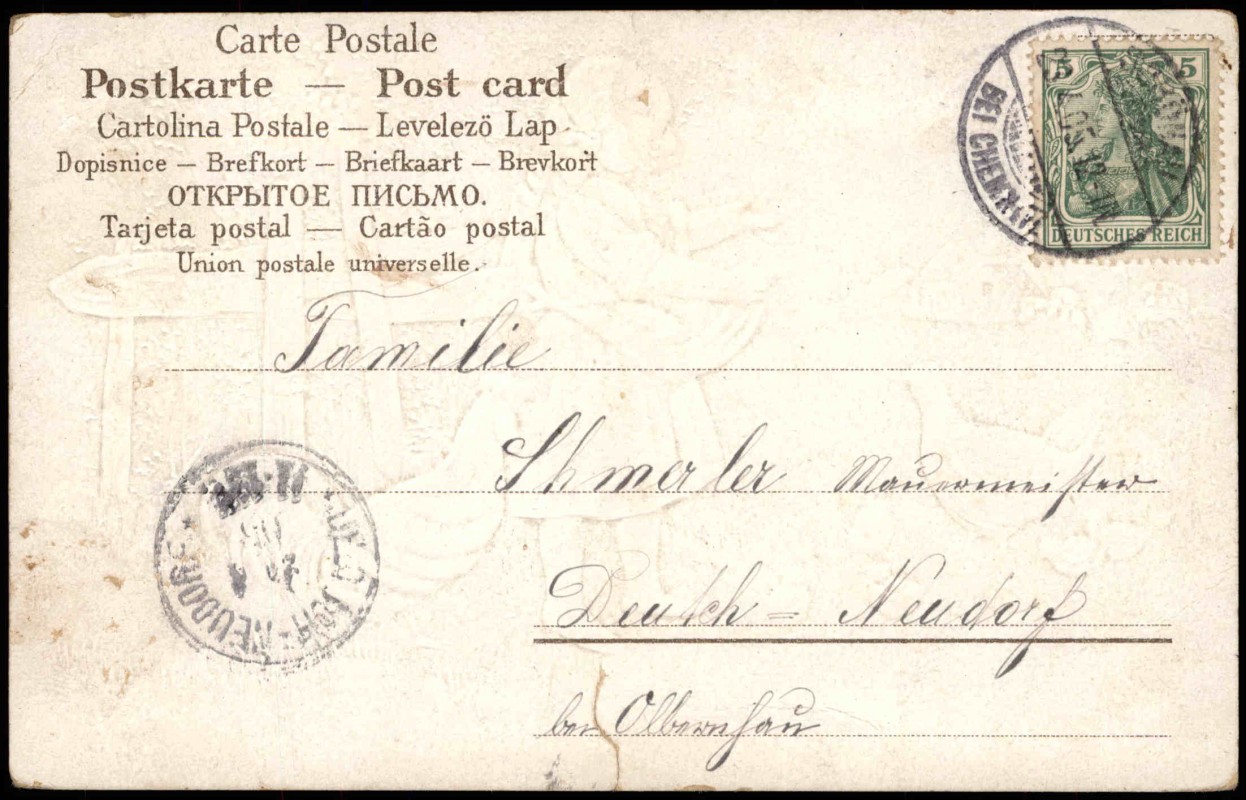 Carte Postale
Postkarte — Post card
Cartolina Postale — Levelezö Lap
Dopisnice — Brefkort — Briefkaart — Brevkort
ОТКРЫТОЕ ПИСЬМО.
Tarjeta postal — Cartão postal
Union postale universelle.
5 5
DEUTSCHES REICH
BEI CHEMNITZ
Familie
Schmerler Mauermeister
Deutsch=Neudorf
bei Olbernhau
-NEUDORF *